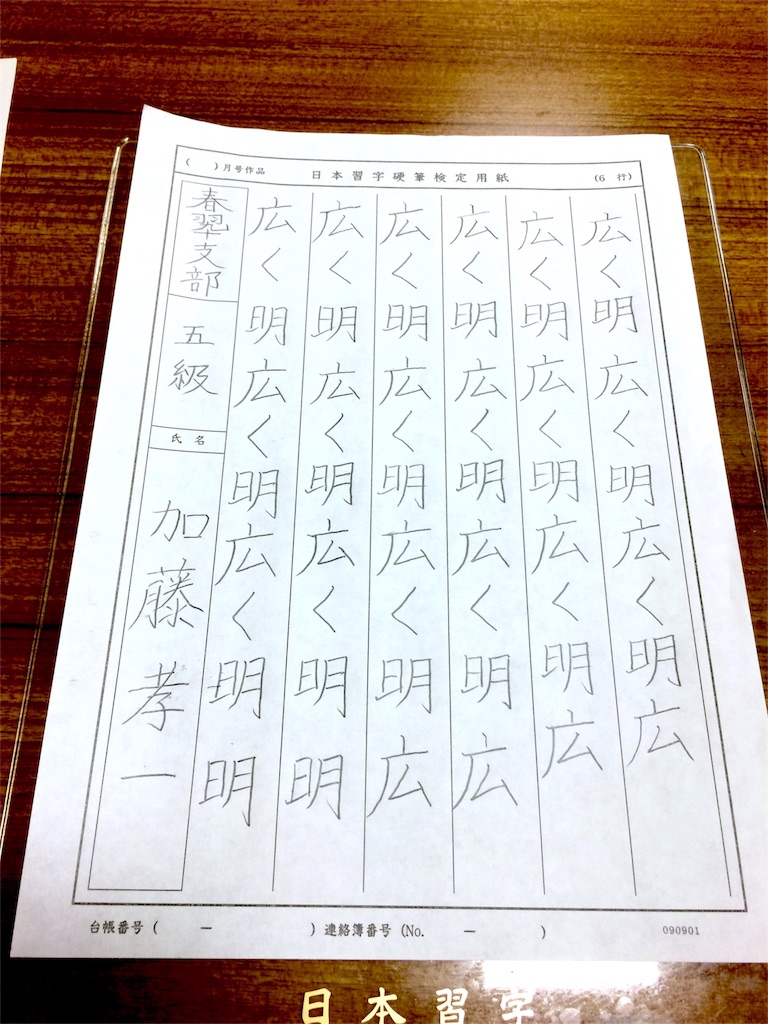 ( )月号作品 日本習字硬筆検定用紙 (6 行)
広く明広く明広く明広
広く明広く明広く明広
広く明広く明広く明広
広く明広く明広く明広
広く明広く明広く明明
広く明広く明広く明明
春翠支部
五級
氏名
加藤孝一
台帳番号( － )連絡簿番号(No. － )
090901
日本習字